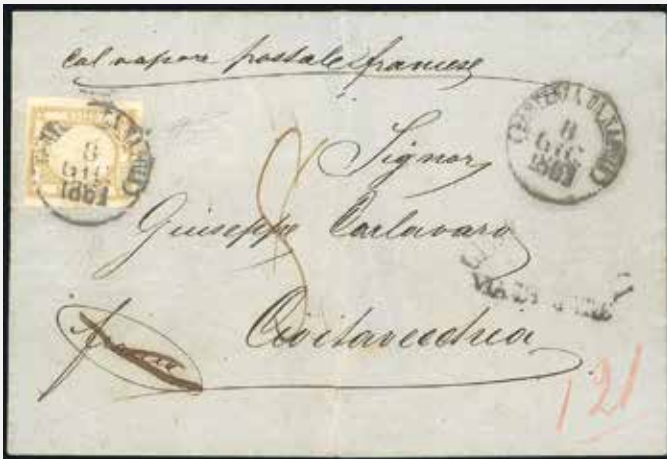 Col vapore postale francese
8
GIU
1861
8
GIU
1861
Signor
8
Giuseppe Carlavaro
VIA DI MARE
Civitavecchia
franco
121